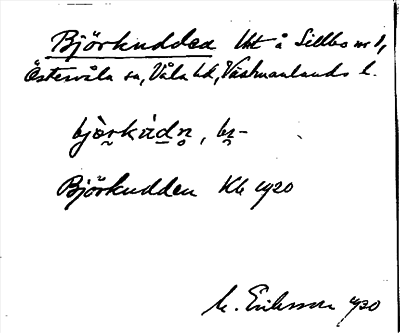 Björkudden Utt å Sillbo nr 1,
Östervåla sn, Våla hd, Västmanlands l.
Björkudden Kb 1920
M. Eriksson 1930